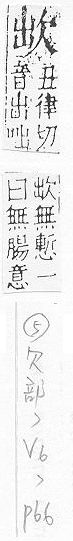 欪
丑律切
音出咄
欪無慙一
曰無腸意
⑤欠部>V6>p66